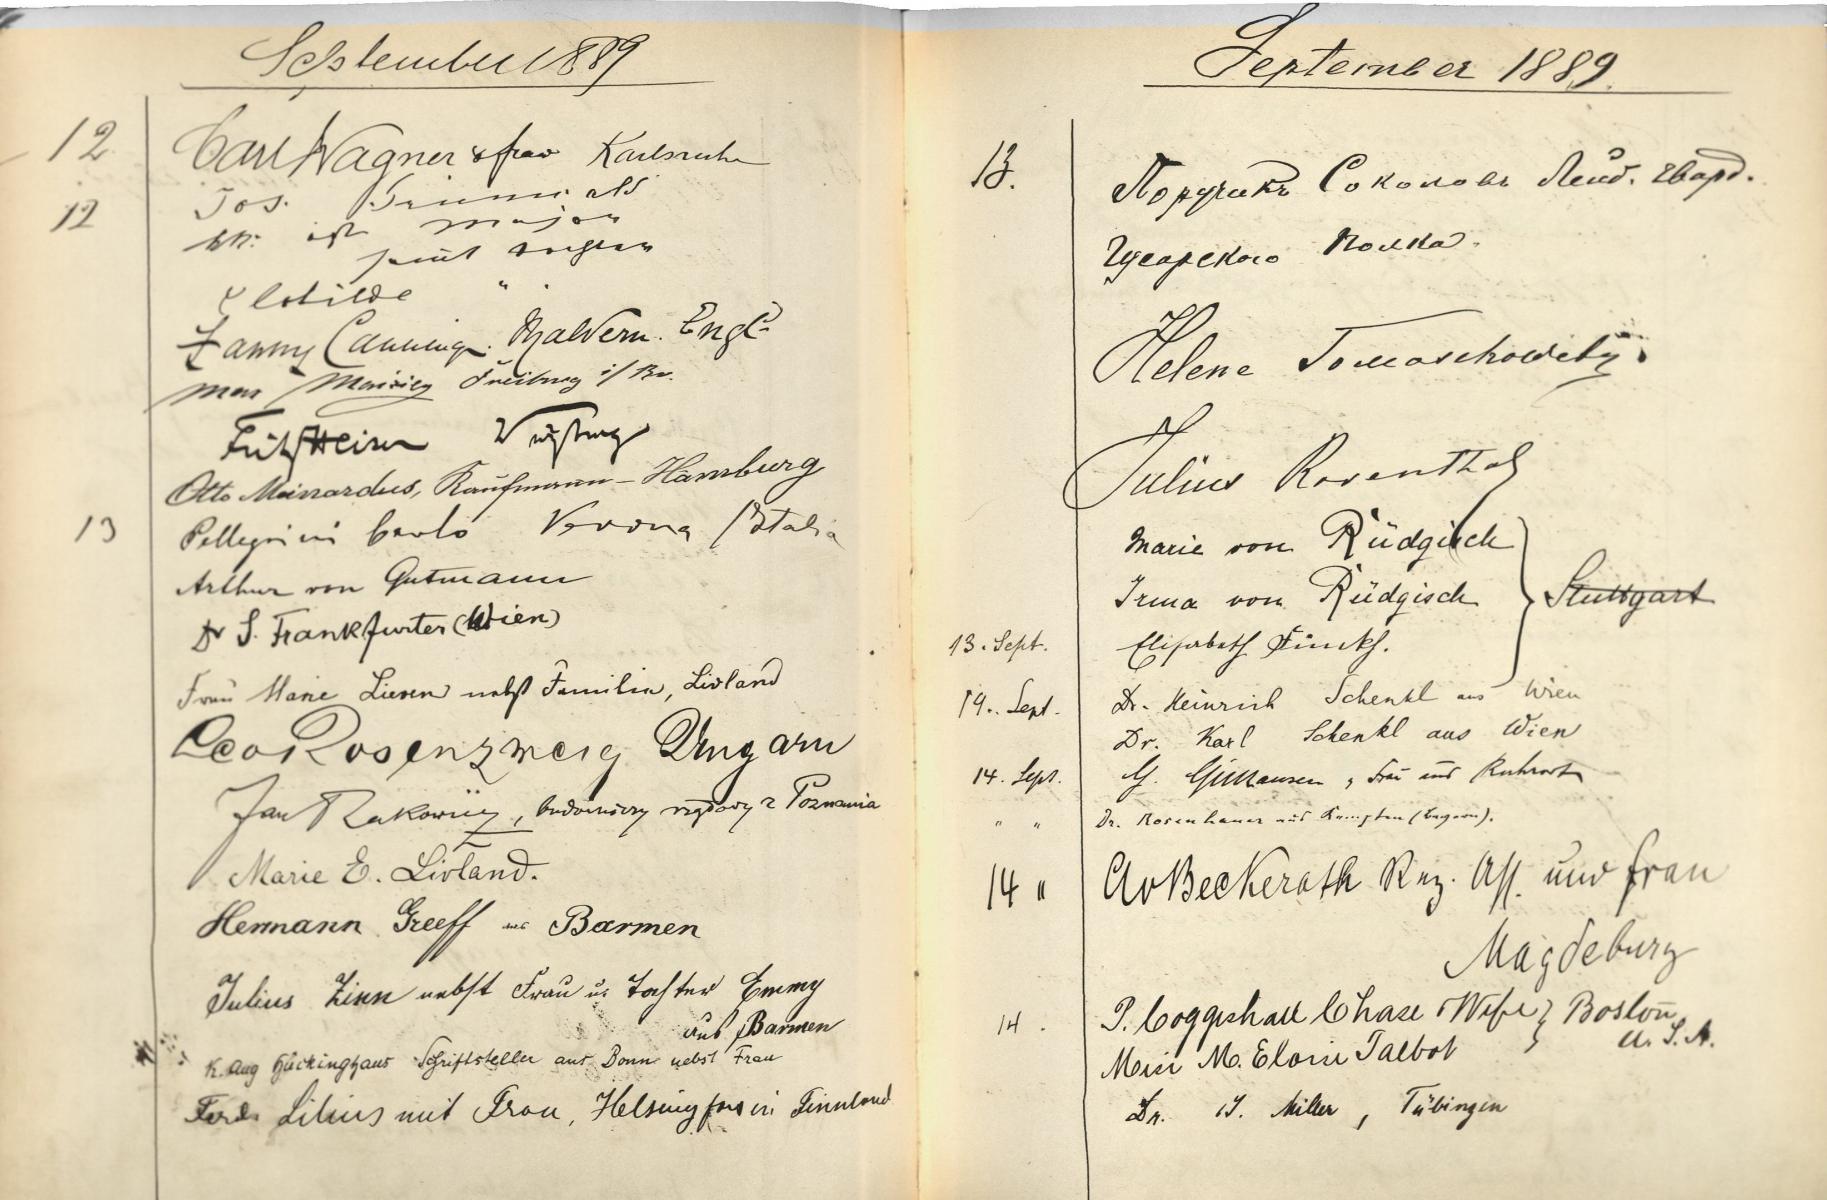 September 1889
12 Carl Wagner & frau Karlsruhe
12 Jos.
kk. major
Clotilde "
Fanny Canning. Malvern. Engl.
Max Freiburg i/Br.
Fritz Heiser Würzburg
Otto Meinardus, Kaufmann – Hamburg
13 Pellegrini Carlo Verona /Italia
Arthur von Gutmann
Dr S. Frankfurter (Wien)
Frau Marie Lieven nebst Familie, Livland
Leo Rosenzweig Ungarn
Jan Rakowicz, budowniczy rządowy z Poznania
Marie E. Livland.
Hermann Greeff aus Barmen
Julius Zinn nebst Frau u. Tochter Emmy
aus Barmen
K. Aug Hückinghaus Schriftsteller aus Bonn nebst Frau
Ferd. Lilius mit Frau, Helsingfors in Finnland
September 1889.
13. Поручикъ Соколовъ Лейб. Гвард.
Гусарского Полка.
Helene Tomaschowsky.
Julius Rosenthal
Marie von Rüdgisch
Irma von Rüdgisch Stuttgart
13. Sept. Elisabeth Finckh.
14. Sept. Dr. Heinrich Schenkl aus Wien
Dr. Karl Schenkl aus Wien
14. Sept. G. Gillhausen, Frau aus Ruhrort
" " Dr. Rosenhauer aus Kempten (Bayern).
14 " AvBeckerath Reg. Ass. und Frau
Magdeburg
14. P. Coggeshall Chase & Wife Boston
Miss M. Eloise Talbot U. S. A.
Dr. Miller, Tübingen